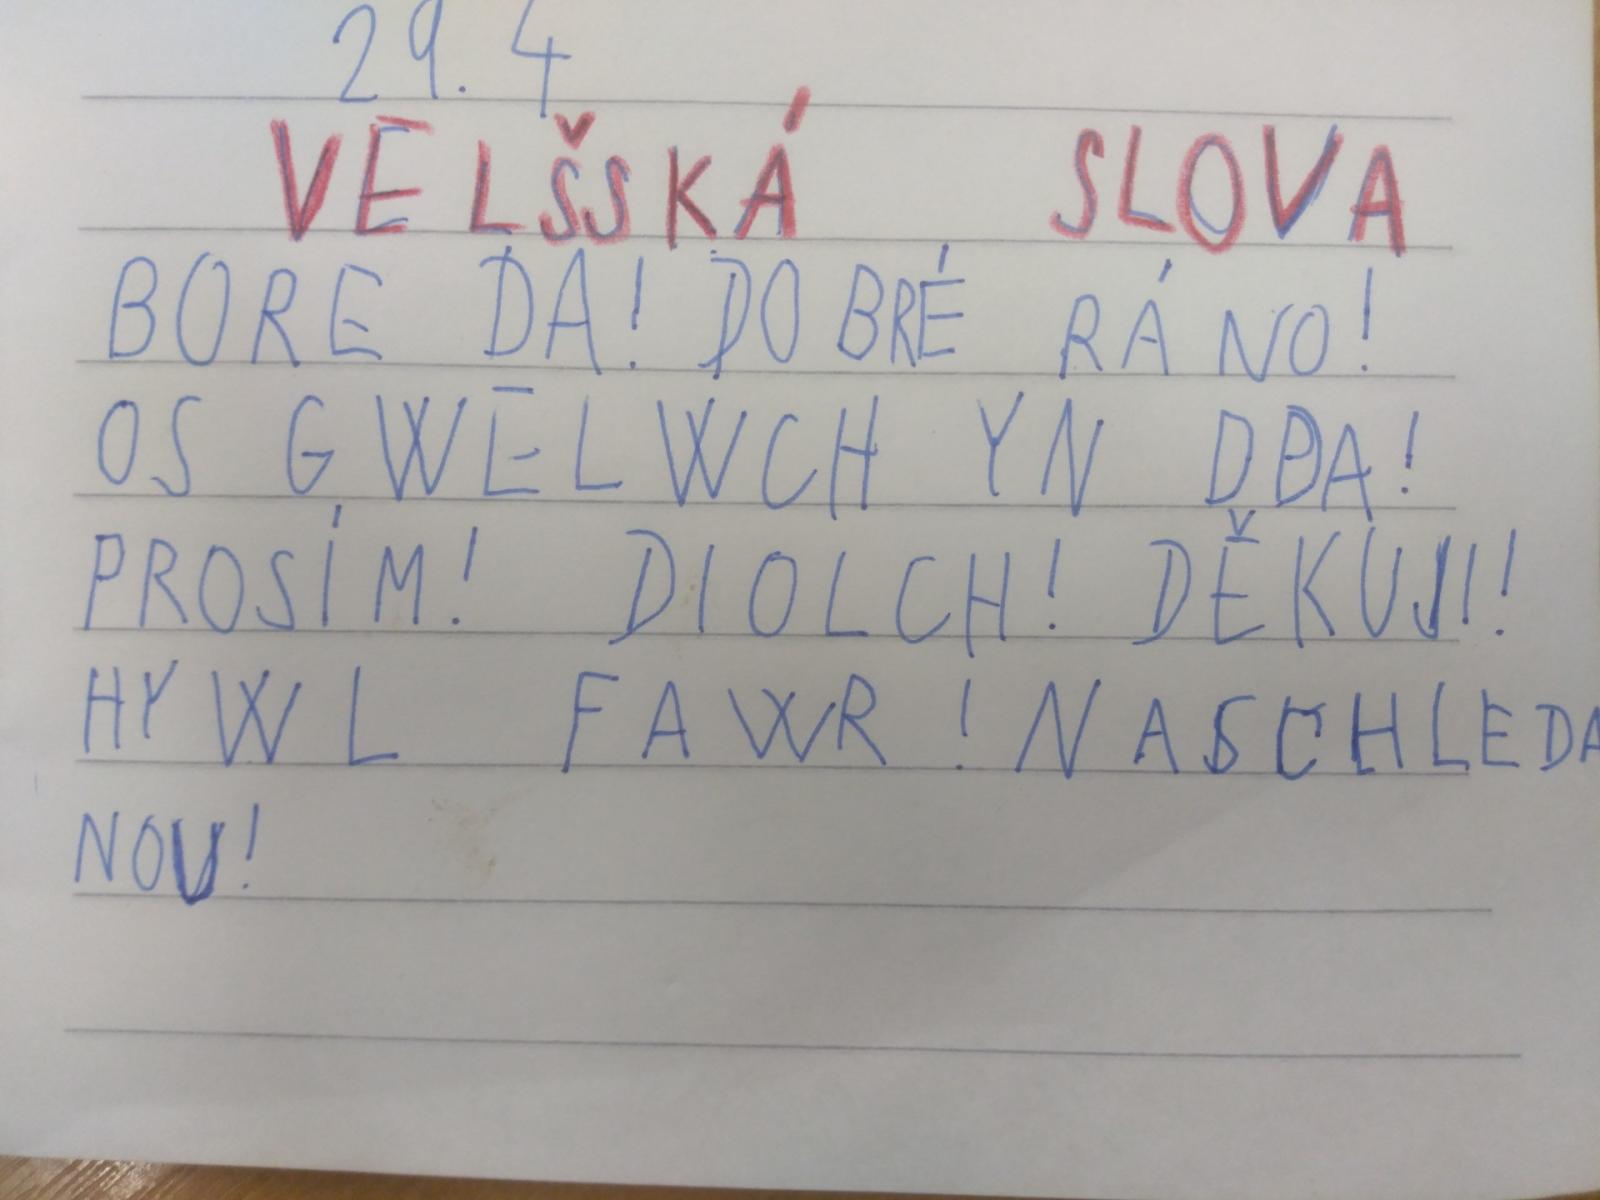 29. 4
VELŠSKÁ SLOVA
BORE DA! DOBRÉ RÁNO!
OS GWELWCH YN DDA!
PROSÍM! DIOLCH! DĚKUJI!
HYWL FAWR! NASCHLEDA
NOU!